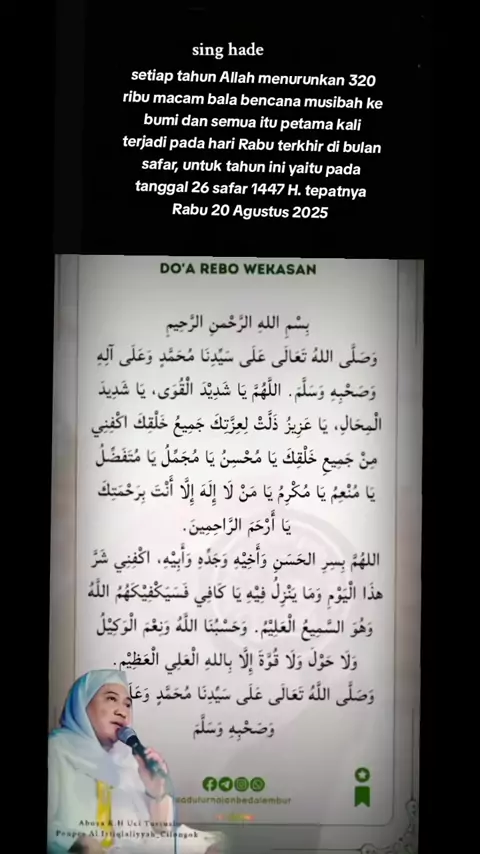 sing hade
setiap tahun Allah menurunkan 320
ribu macam bala bencana musibah ke
bumi dan semua itu petama kali
terjadi pada hari Rabu terkhir di bulan
safar, untuk tahun ini yaitu pada
tanggal 26 safar 1447 H. tepatnya
Rabu 20 Agustus 2025
DO'A REBO WEKASAN
بِسْمِ اللهِ الرَّحْمنِ الرَّحِيمِ
وَصَلَّى اللهُ تَعَالَى عَلَى سَيِّدِنَا مُحَمَّدٍ وَعَلَى آلِهِ
وَصَحْبِهِ وَسَلَّمَ. اللَّهُمَّ يَا شَدِيْدَ الْقُوَى، يَا شَدِيدَ
الْمِحَالِ، يَا عَزِيزُ ذَلَّتْ لِعِزَّتِكَ جَمِيعُ خَلْقِكَ اكْفِنِي
مِنْ جَمِيعِ خَلْقِكَ يَا مُحْسِنُ يَا مُجَمِّلُ يَا مُتَفَضِّلُ
يَا مُنْعِمُ يَا مُكْرِمُ يَا مَنْ لَا إِلَهَ إِلَّا أَنْتَ بِرَحْمَتِكَ
يَا أَرْحَمَ الرَّاحِمِينَ.
اللهُمَّ بِسِرِ الحَسَنِ وَأَخِيْهِ وَجَدِّهِ وَأَبِيْهِ، اكْفِنِي شَرَّ
هذَا الْيَوْمِ وَمَا يَنْزِلُ فِيْهِ يَا كَافِي فَسَيَكْفِيْكَهُمُ اللَّهُ
وَهُوَ السَّمِيعُ الْعَلِيْمُ. وَحَسْبُنَا اللَّهُ وَنِعْمَ الْوَكِيْلُ
وَلَا حَوْلَ وَلَا قُوَّةَ إِلَّا بِاللهِ الْعَلِي الْعَظِيْمِ.
وَصَلَّى اللَّهُ تَعَالَى عَلَى سَيِّدِنَا مُحَمَّدٍ وَعَلَ
وَصَحْبِهِ وَسَلَّمَ
Abuya K.H Uci
Ponpes Al Istiqlaliyyah_Cilongok